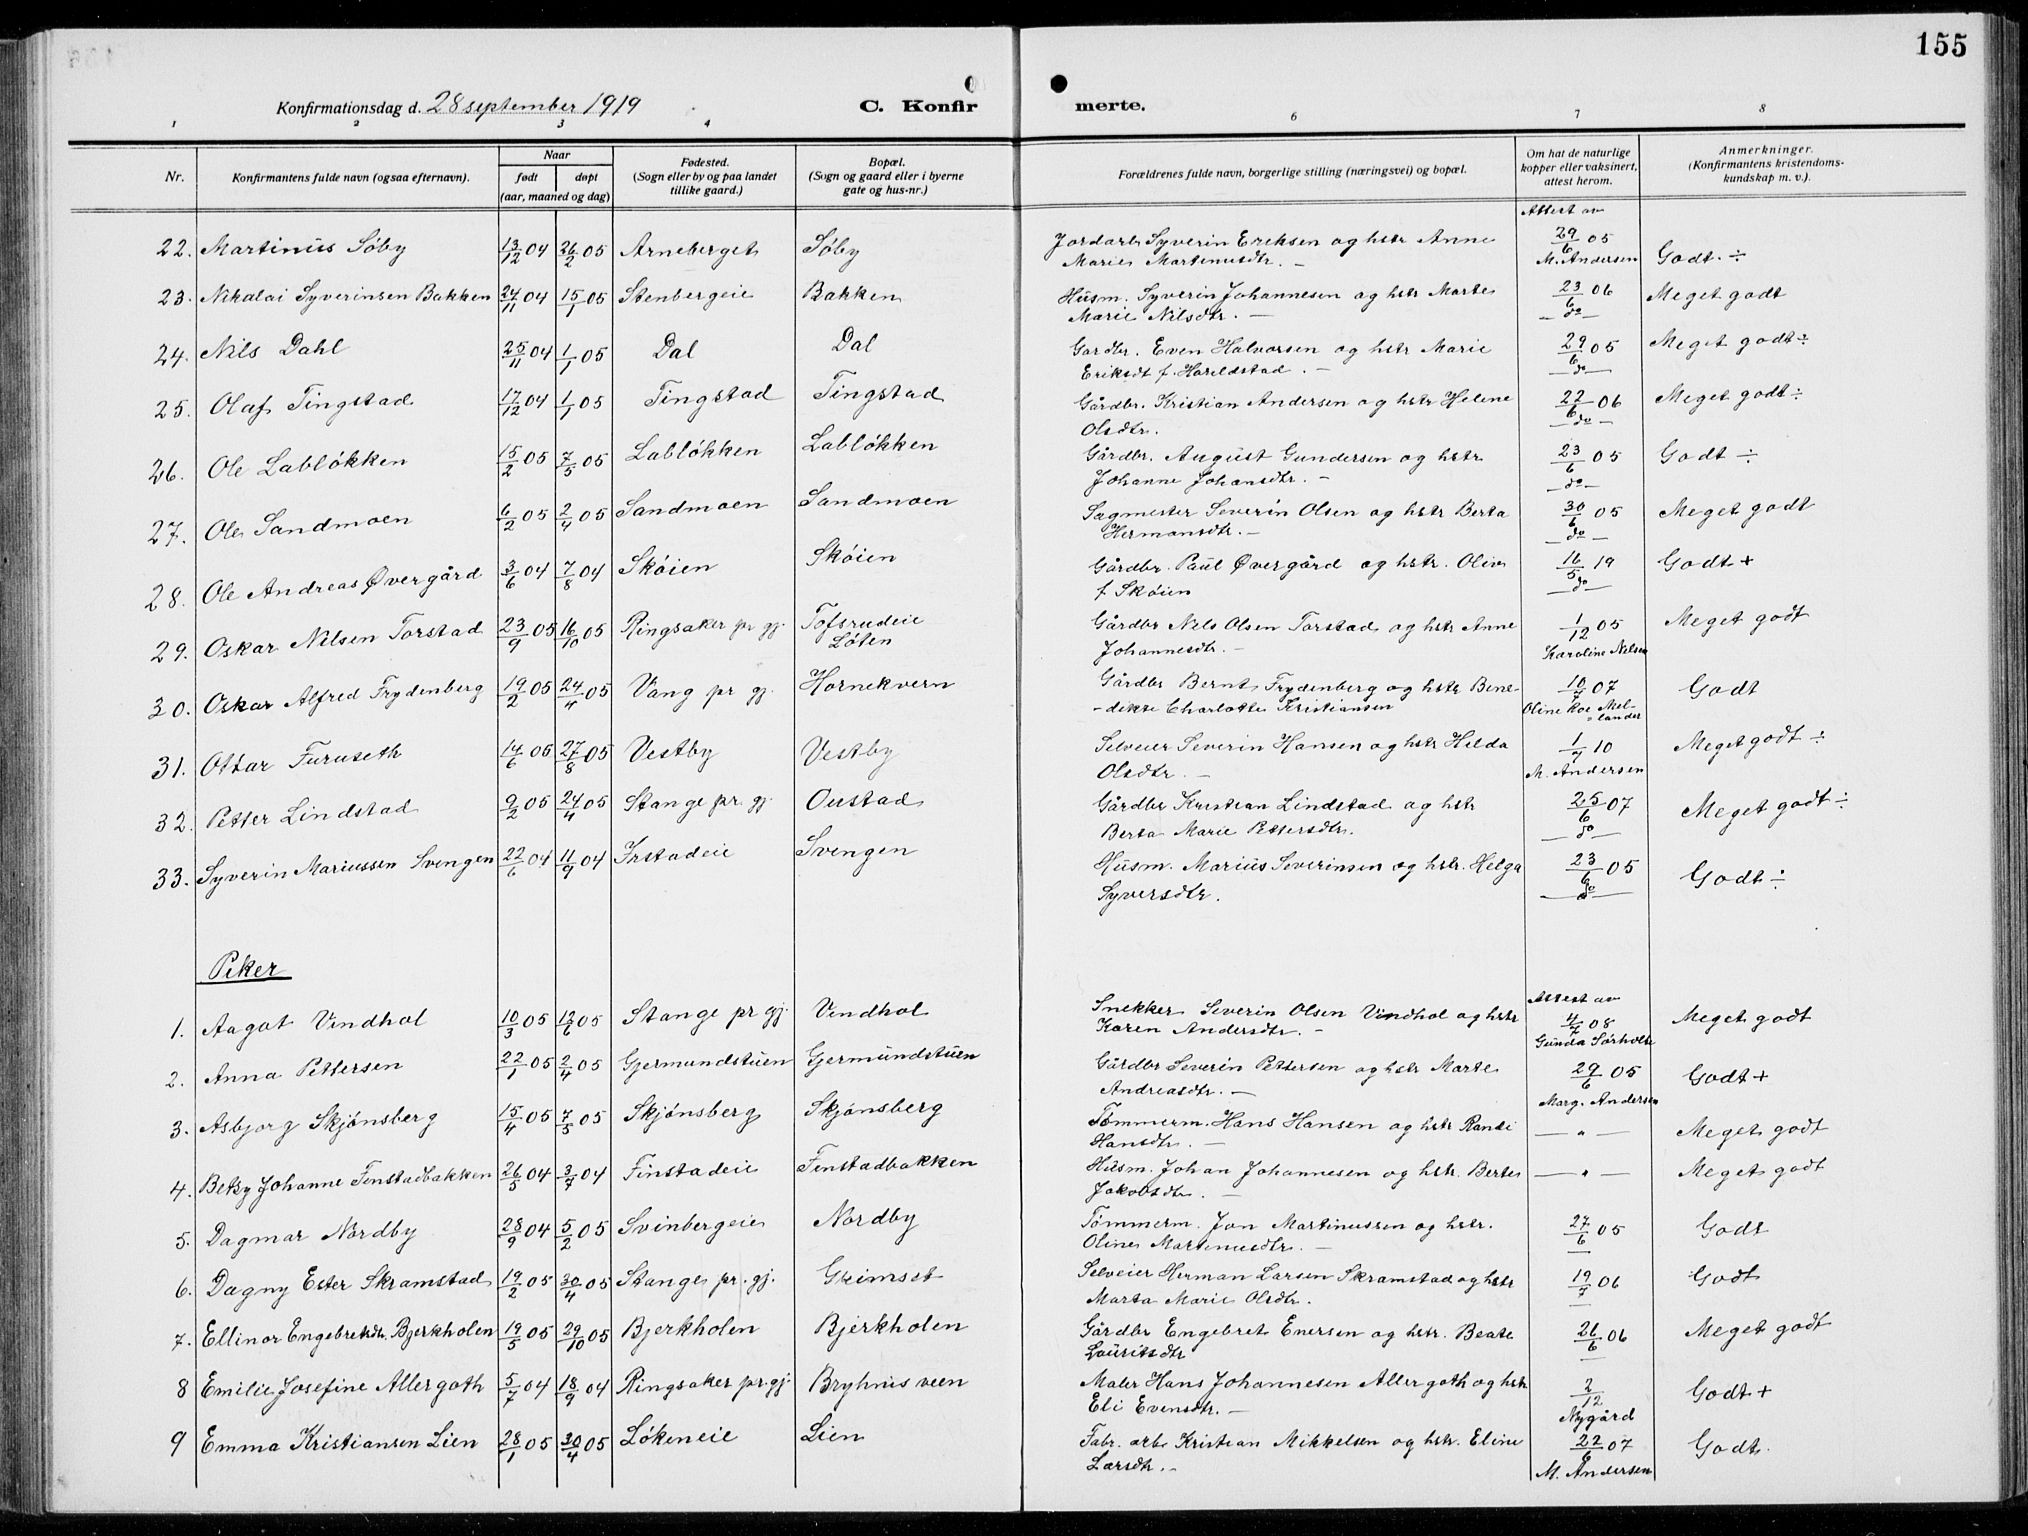 155
Konfirmationsdag d. 28 september 1919
C. Konfirmerte.
1 2 3 4 6 7 8
Nr. | Konfirmantens fulde navn (ogsaa efternavn). | Naar født døpt (aar, maaned og dag) | Fødested. (Sogn eller by og paa landet tillike gaard.) | Bopæl. (Sogn og gaard eller i byerne gate og hus-nr.) | Forældrenes fulde navn, borgerlige stilling (næringsvei) og bopæl. | Om hat de naturlige kopper eller vaksinert, attest herom. | Anmerkninger. (Konfirmantens kristendomskundskap m. v.).
22. Martinus Søby 13/12 04 26/2 05 Arneberget Søby Jordarb. Syverin Eriksen og hstr Anne Marie Martinusdtr. – Attest av 29/6 05 M. Andersen Godt ÷
23. Nikolai Syverinsen Bakken 24/11 04 15/1 05 Stenbergeie Bakken Husm. Syverin Johannesen og hstr Marte Marie Nilsdtr. – 23/6 06 – do – Meget godt
24. Nils Dahl 25/11 04 1/1 05 Dal Dal Gardbr. Even Halvorsen og hstr Marie Eriksdt f. Harildstad. – 29/6 05 – do – Meget godt ÷
25. Olaf Tingstad 17/12 04 1/1 05 Tingstad Tingstad Gårdbr. Kristian Andersen og hstr Helene Olsdtr. 22/6 06 – do – Meget godt ÷
26. Ole Labløkken 15/2 05 7/5 05 Labløkken Labløkken Gårdbr. August Gundersen og hstr Johanne Johansdtr. – 23/6 05 – do – Godt ÷
27. Ole Sandmoen 6/2 05 2/4 05 Sandmoen Sandmoen Sagmester Severin Olsen og hstr Berta Hermansdtr. – 30/6 05 – do – Meget godt
28. Ole Andreas Øvergård 3/6 04 7/8 04 Skøien Skøien Gårdbr. Paul Øvergård og hstr. Oline f Skøien 16/5 19 – do – Godt +
29. Oskar Nilsen Torstad 23/9 05 16/10 05 Ringsaker pr gj. Tofsrudeie Løten Gårdbr Nils Olsen Torstad og hstr Anne Johannesdtr. – 1/12 05 Karoline Nilsen Meget godt
30. Oskar Alfred Frydenberg 19/2 05 24/4 05 Vang pr gj. Hornekvern Gårdbr Bernt Frydenberg og hstr Bene-dikte Charlotte Kristiansen 10/7 07 Oline Roe Mellander Godt
31. Ottar Furuseth 14/6 05 27/8 05 Vestby Vestby Selveier Severin Hansen og hstr Hilda Olsdtr. – 1/7 10 M. Andersen Meget godt ÷
32. Petter Lindstad 9/2 05 24/4 05 Stange pr. gj. Oustad Gårdbr Kristian Lindstad og hstr Berta Marie Pettersdtr. 25/6 07 – do – Meget godt ÷
33. Syverin Mariussen Svengen 22/6 04 11/9 04 Irstadeie Svengen Husm. Marius Severinsen og hstr. Helga Syversdtr. 23/6 05 – do – Godt ÷
Piker
1. Aagot Vendhol 10/3 05 12/6 05 Stange pr gj. Vendhol Snekker Severin Olsen Vendhol og hstr Karen Andersdtr. – Attest av 4/7 08 Gunda Sørholte Meget godt
2. Anna Pettersen 22/1 05 2/4 05 Gjermundstuen Gjermundstuen Gårdbr Severin Pettersen og hstr Marte Andreasdtr. – 29/6 05 Marg. Andersen Godt +
3. Asbjorg Skjønsberg 15/4 05 7/5 05 Skjønsberg Skjønsberg Tømmerm. Hans Hansen og hstr Randi Hansdtr. – – " – Meget godt
4. Betsy Johanne Finstadbakken 26/5 04 3/7 04 Finstadeie Finstadbakken Husm. Johan Johannesen og hstr. Berte Jakobsdtr. – – " – Meget godt
5. Dagmar Nordby 28/9 04 5/2 05 Svinbergeie Nordby Tømmerm. Jon Martinussen og hstr. Oline Martinusdtr. – 27/6 05 – Godt
6. Dagny Ester Skramstad 19/2 05 30/4 05 Stange pr. gj. Grimset Selveier Herman Larsen Skramstad og hstr Marta Marie Olsdtr. 19/7 06 – Godt
7. Ellinor Engebretsdtr. Bjerkholen 19/5 05 29/10 05 Bjerkholen Bjerkholen Gårdbr Engebret Enersen og hstr. Beate Lauritsdtr 26/6 06 – Meget godt
8 Emilie Josefine Allergoth 5/7 04 18/9 04 Ringsaker pr. gj. Bryhnis veen Maler Hans Johannesen Allergoth og hstr Eli Evensdtr. – 2/12 Nygård Godt +
9 Emma Kristiansen Lien 28/1 05 30/4 05 Løkeneie Lien Fabr. arb Kristian Mikkelsen og hstr. Eline Larsdtr. – 22/6 07 M. Andersen Godt.